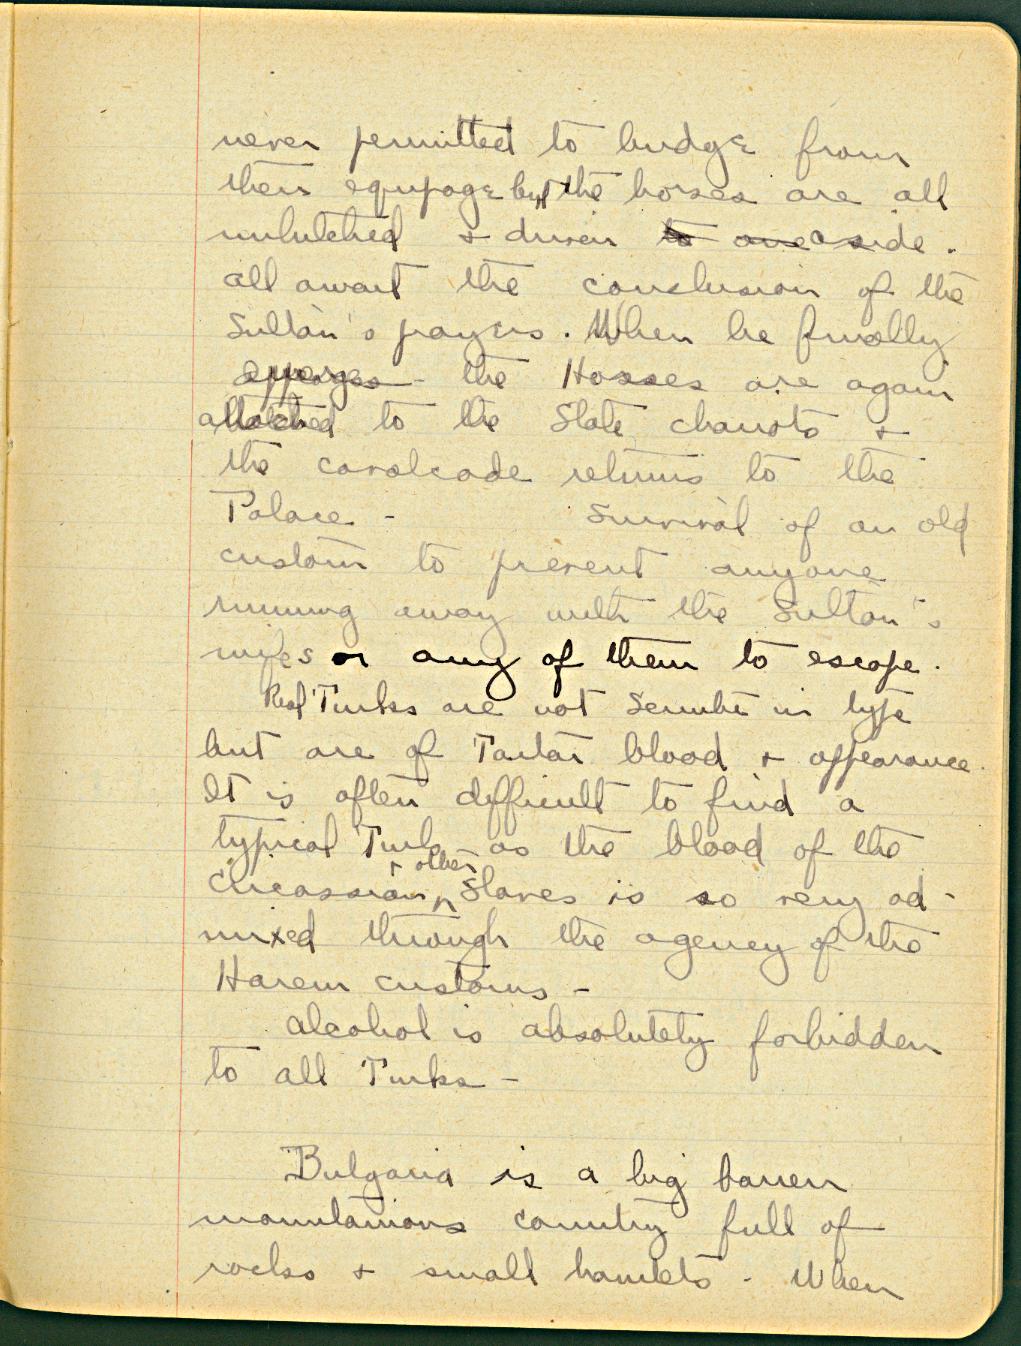 never permitted to budge from
their equipage but the horses are all
unhitched + driven to one aside.
all await the conclusion of the
Sultan's prayers. When he finally
emerges - the Horses are again
attached to the State chariots +
the cavalcade returns to the
Palace - Survival of an old
custom to prevent anyone
running away with the Sultan's
wifes or any of them to escape.
Real Turks are not Semitic in type
but are of Tartar blood + appearance.
It is often difficult to find a
typical Turk as the blood of the
Circassian + other Slaves is so very ad-
mixed through the agency of the
Harem customs -
alcohol is absolutely forbidden
to all Turks -
Bulgaria is a big barren
mountainous country full of
rocks + small hamlets - When